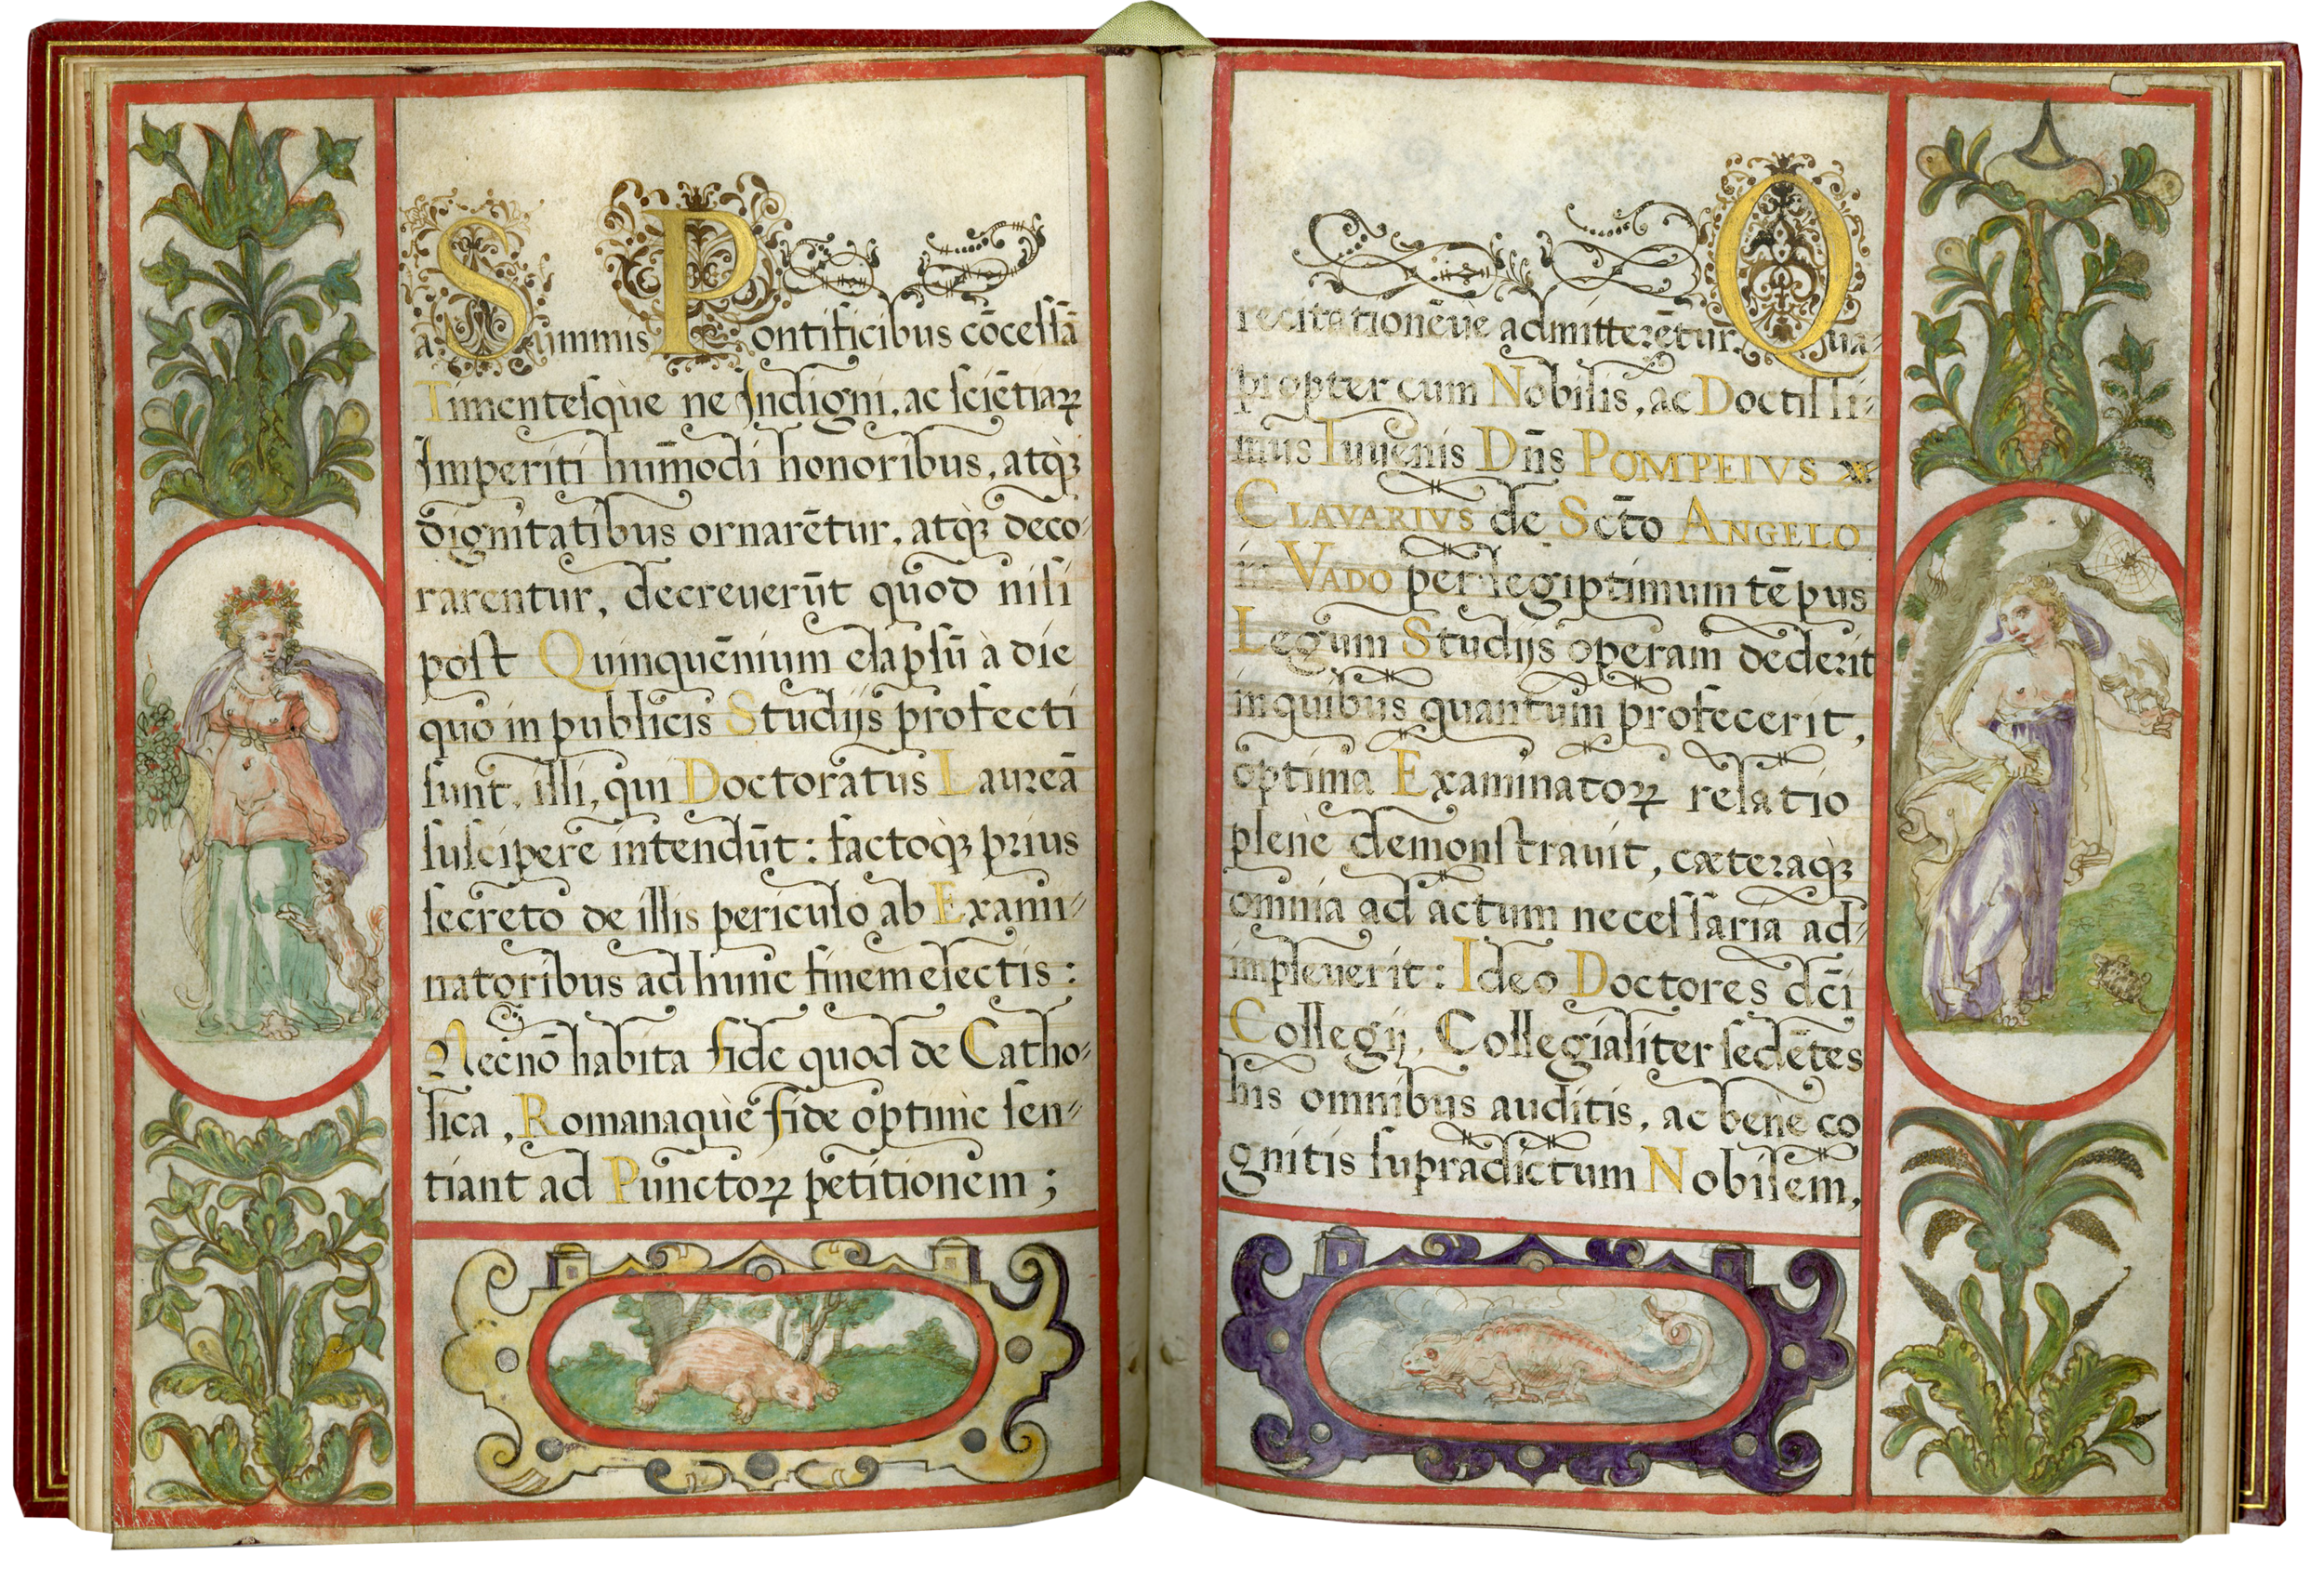 a Summis Pontificibus cōcessā
Timentesque ne Indigni, ac sciētiaꝝ
Imperiti hūmodi honoribus, atq̀ꝫ
dignitatibus ornarētur, atq̀ꝫ deco-
rarentur, decreuerūt quod nisi
post Quinquēnium elapsū à die
quo in publicis Studijs profecti
sunt, illi, qui Doctoratus Laureā
suscipere intendūt: factoq̀ꝫ prius
secreto de illis periculo ab Exami-
natoribus ad hunc finem electis:
Necnō habita fide quod de Catho-
lica, Romanaquè fide optimè sen-
tiant ad Punctoꝝ petitionem;
recitationēue admitterētur. Qua-
propter cum Nobilis, ac Doctissi-
mus Iuuenis Dñs POMPEIVS
CLAVARIVS de Scto ANGELO
in VADO per legiptimum tēpus
Legum Studijs operam dederit
in quibus quantum profecerit,
optima Examinatoꝝ relatio
plenè demonstrauit, cæteraq̀ꝫ
omnia ad actum necessaria ad-
impleuerit: Ideo Doctores dc̄i
Collegij, Collegialiter sedētes
his omnibus auditis, ac benè co
gnitis supradictum Nobilem,